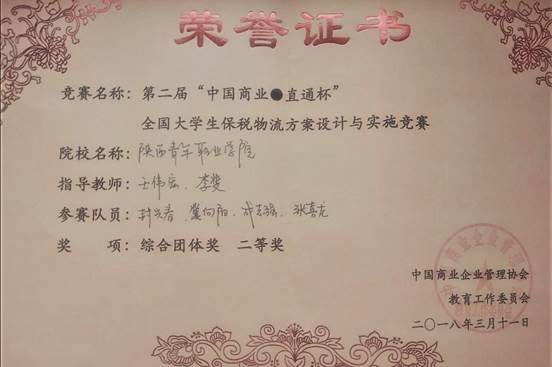 荣誉证书
竞赛名称：第二届“中国商业●直通杯”
全国大学生保税物流方案设计与实施竞赛
院校名称：陕西青年职业学院
指导教师：王伟宏、李斐
参赛队员：封兴春、冀向阳、成志强、张喜龙
奖 项：综合团体奖 二等奖
中国商业企业管理协会
教育工作委员会
二〇一八年三月十一日